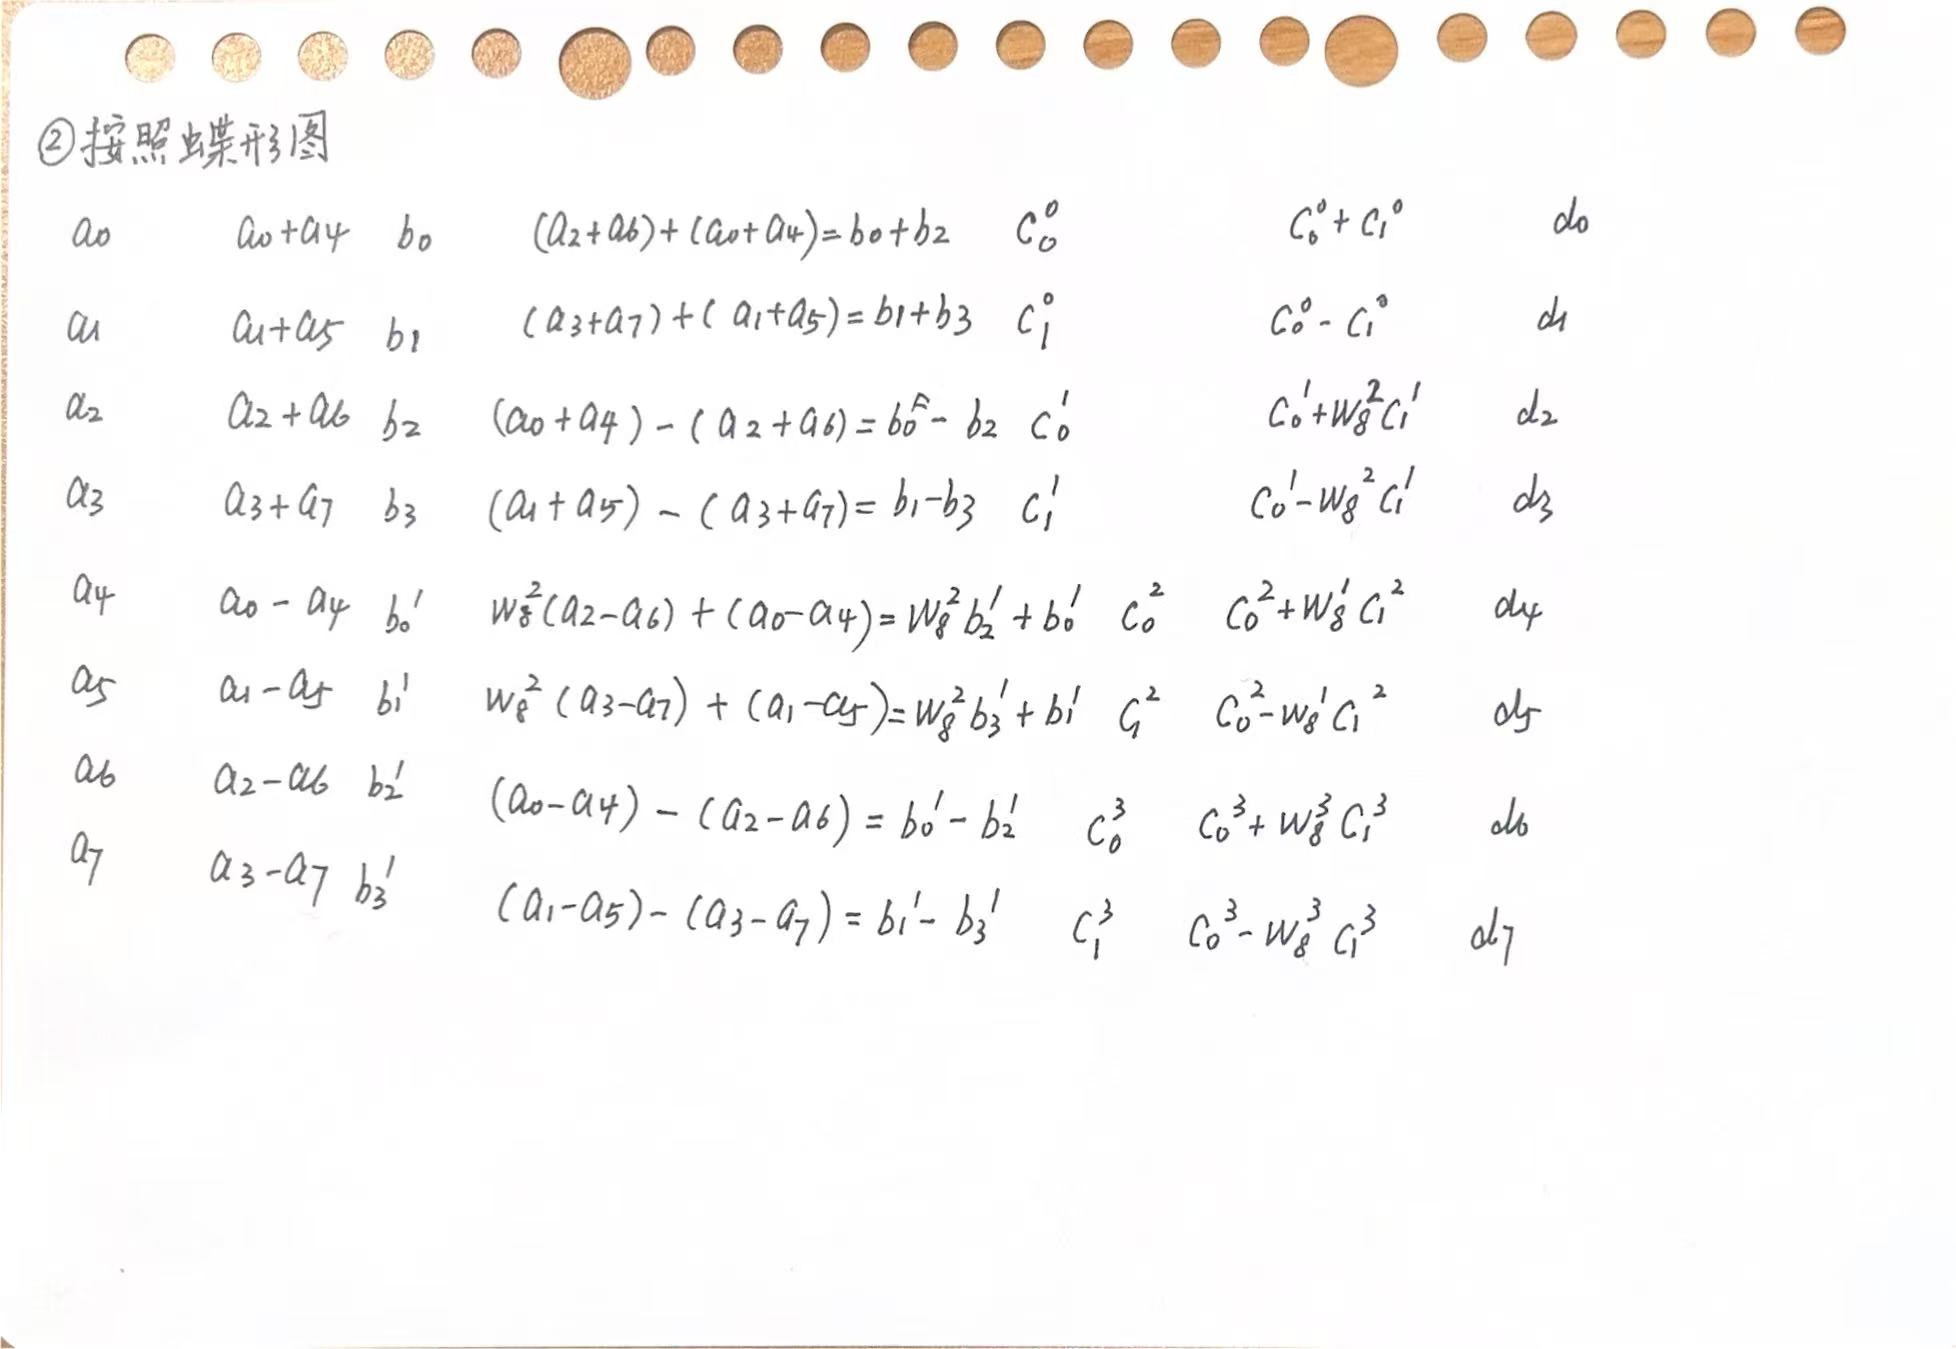 ②按照蝶形图
a₀ a₀+a₄ b₀ (a₂+a₆)+(a₀+a₄)=b₀+b₂ C₀⁰ C₀⁰+C₁⁰ d₀
a₁ a₁+a₅ b₁ (a₃+a₇)+(a₁+a₅)=b₁+b₃ C₁⁰ C₀⁰-C₁⁰ d₁
a₂ a₂+a₆ b₂ (a₀+a₄)-(a₂+a₆)=b₀-b₂ C₀¹ C₀¹+W₈²C₁¹ d₂
a₃ a₃+a₇ b₃ (a₁+a₅)-(a₃+a₇)=b₁-b₃ C₁¹ C₀¹-W₈²C₁¹ d₃
a₄ a₀-a₄ b₀' W₈²(a₂-a₆)+(a₀-a₄)=W₈²b₂'+b₀' C₀² C₀²+W₈¹C₁² d₄
a₅ a₁-a₅ b₁' W₈²(a₃-a₇)+(a₁-a₅)=W₈²b₃'+b₁' C₁² C₀²-W₈¹C₁² d₅
a₆ a₂-a₆ b₂' (a₀-a₄)-(a₂-a₆)=b₀'-b₂' C₀³ C₀³+W₈³C₁³ d₆
a₇ a₃-a₇ b₃' (a₁-a₅)-(a₃-a₇)=b₁'-b₃' C₁³ C₀³-W₈³C₁³ d₇